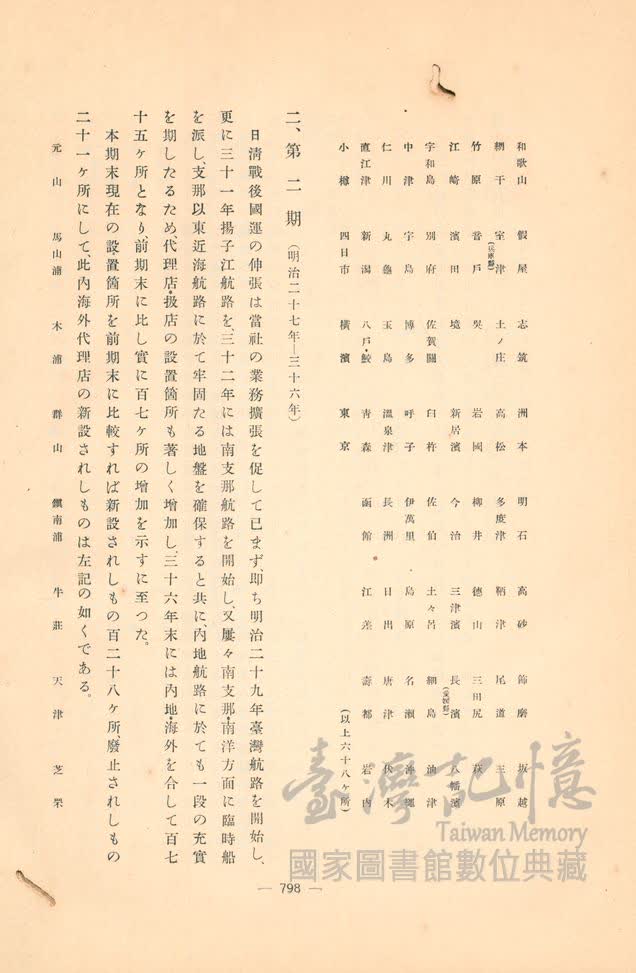 和歌山　假屋　志筑　洲本　明石　高砂　飾磨　坂越
網干　室津（兵庫縣）　土ノ庄　高松　多度津　鞆津　尾道　三原
竹原　音戸　吳　岩國　柳井　德山　三田尻　萩
江崎　濱田　境　新居濱　今治　三津濱　長濱（愛媛縣）　八幡濱
宇和島　別府　佐賀關　臼杵　佐伯　土々呂　細島　油津
中津　宇島　博多　呼子　伊萬里　島原　名瀬　沖繩
仁川　丸龜　玉島　溫泉津　長洲　日出　唐津　伏木
直江津　新潟　八戸・鮫　靑森　函館　江差　壽都　岩内
小樽　四日市　橫濱　東京　（以上六十八ヶ所）
二、第二期（明治二十七年―三十六年）
日淸戰後國運の伸張は當社の業務擴張を促して已まず、卽ち明治二十九年臺灣航路を開始し、
更に三十一年揚子江航路を、三十二年には南支那航路を開始し、又屢々南支那・南洋方面に臨時船
を派し、支那以東近海航路に於て牢固たる地盤を確保すると共に、内地航路に於ても一段の充實
を期したるため、代理店・扱店の設置箇所も著しく增加し、三十六年末には内地・海外を合して百七
十五ヶ所となり、前期末に比し實に百七ヶ所の增加を示すに至つた。
本期末現在の設置箇所を前期末に比較すれば新設されしもの百二十八ヶ所、廢止されしもの
二十一ヶ所にして、此内海外代理店の新設されしものは左記の如くである。
元山　馬山浦　木浦　群山　鎭南浦　牛莊　天津　芝罘
— 798 —
臺灣記憶
Taiwan Memory
國家圖書館數位典藏